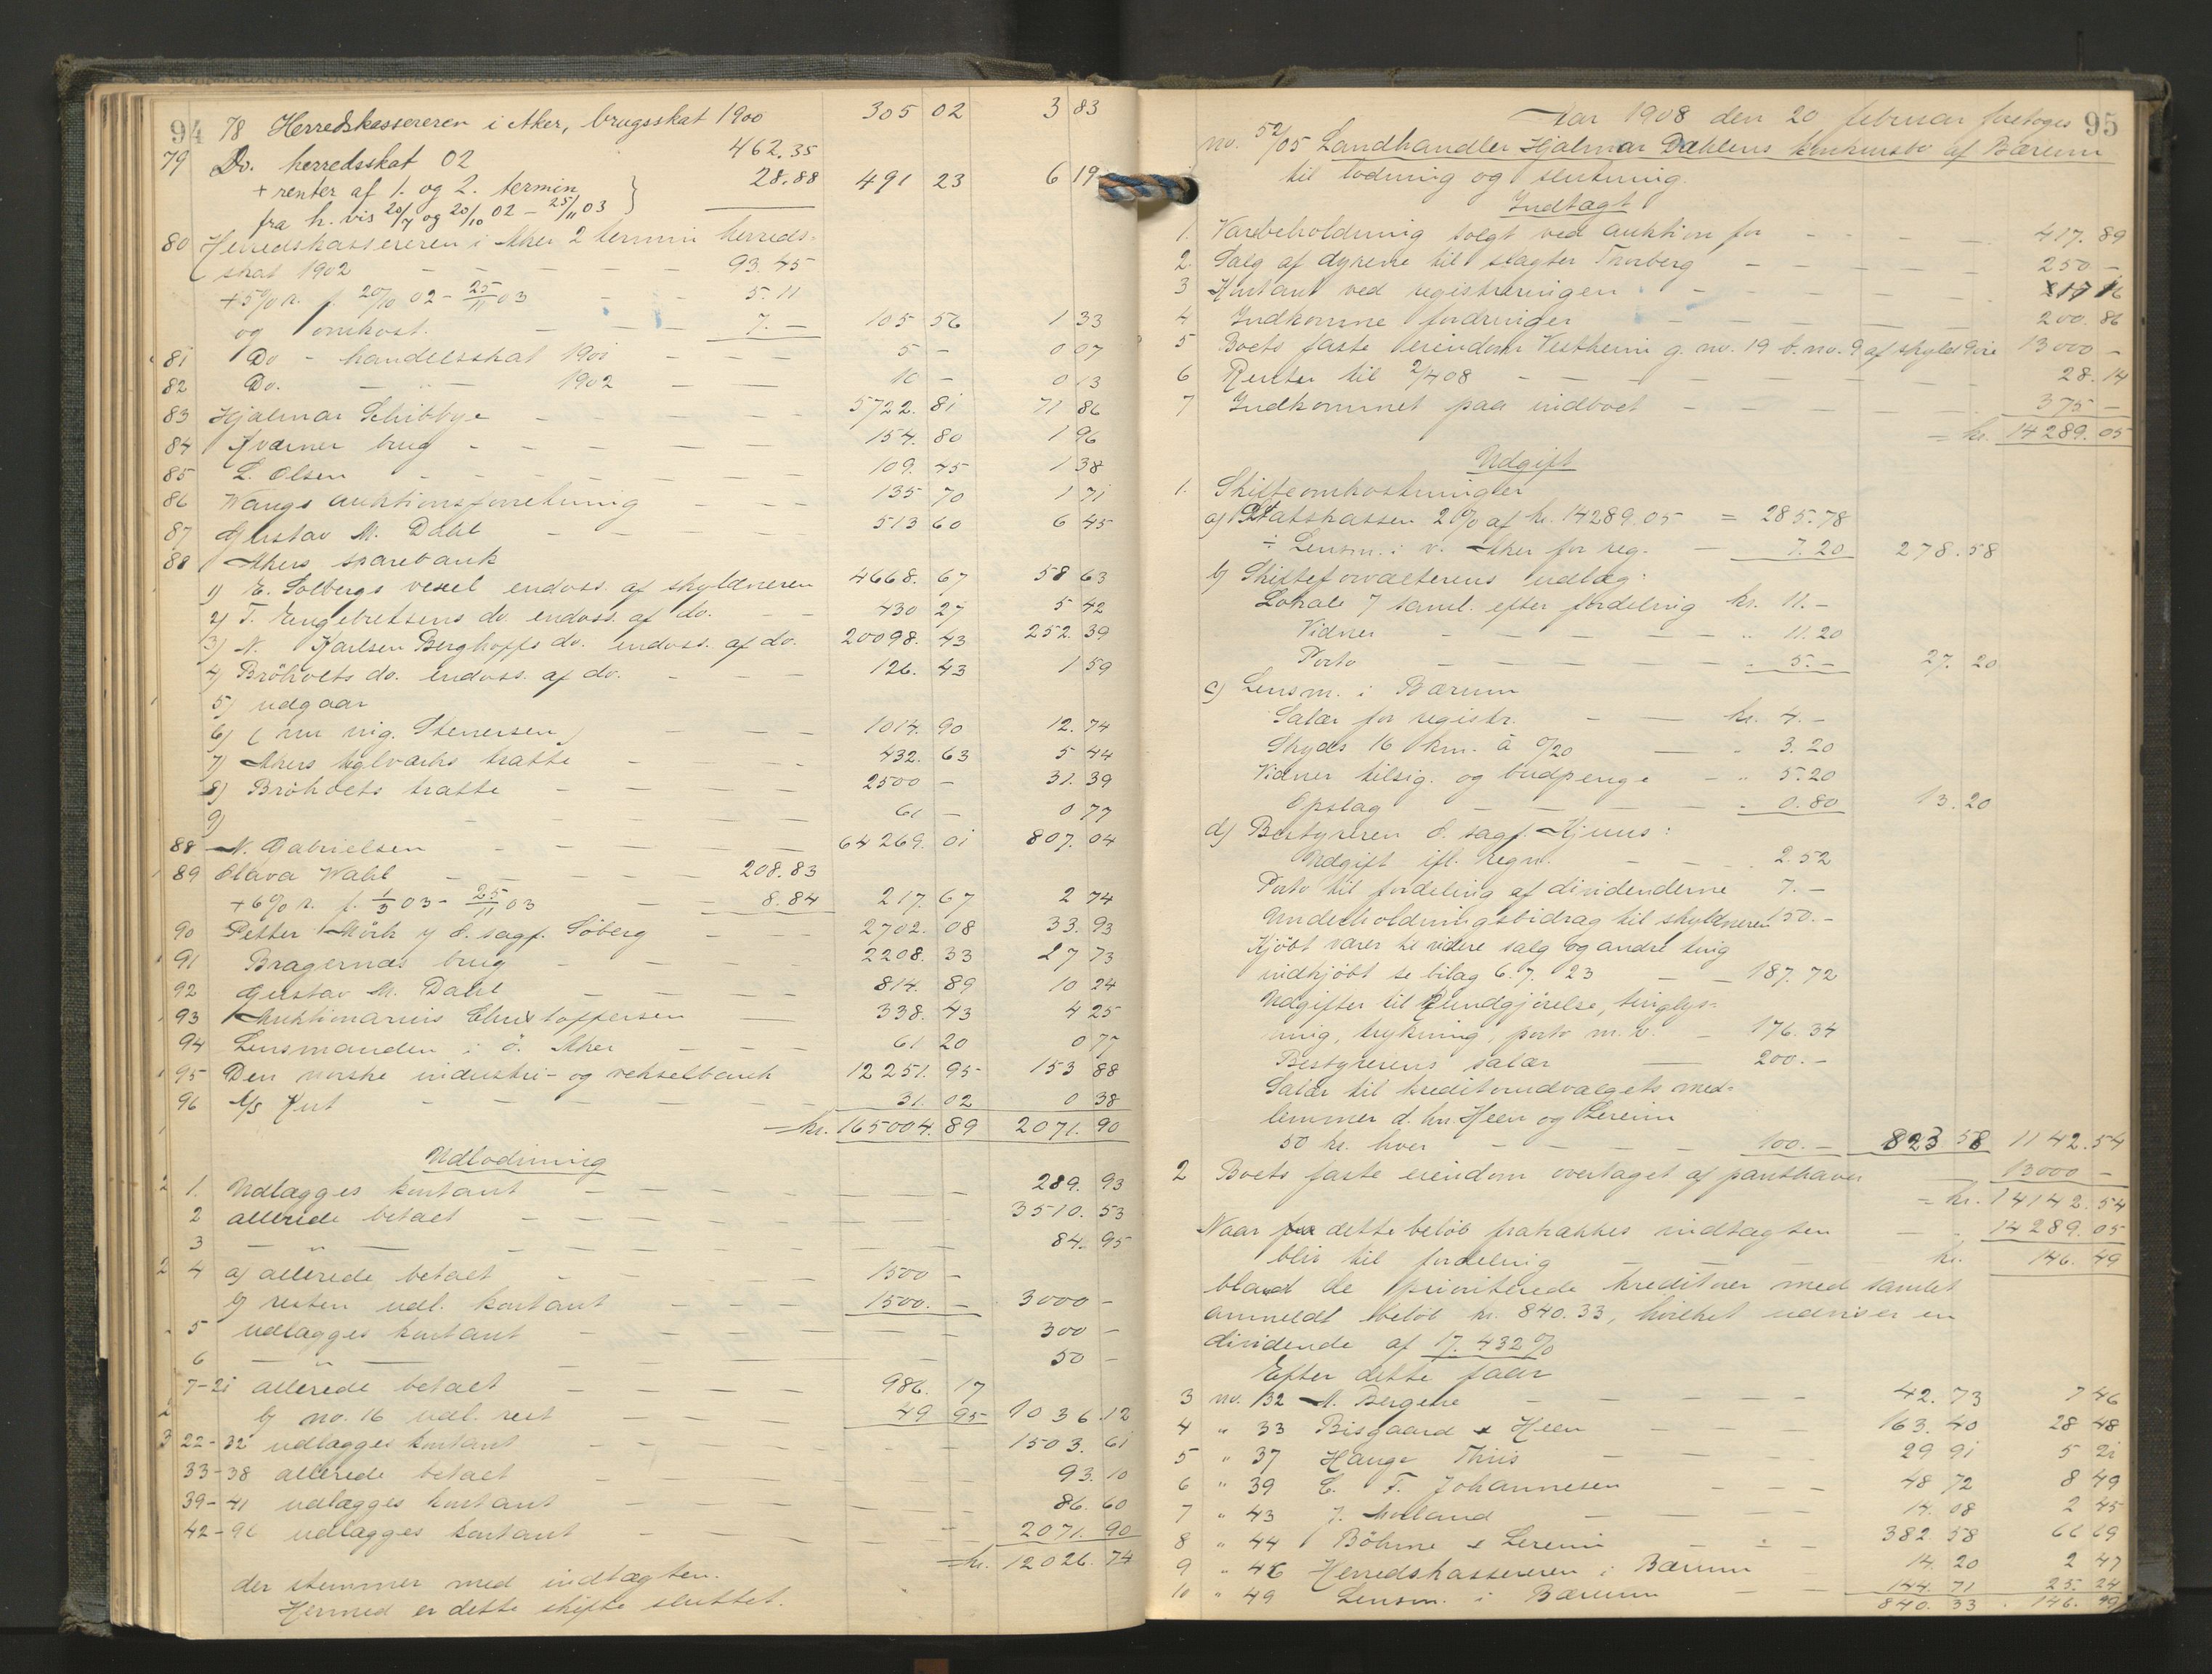 94
78 Herredskassereren i Aker, brugsskat 1900 305 02 3 83
79 Do. herredsskat 02 462.35
+ renter af 1. og 2. termin 28.88 491 23 6 19
fra h. vis 20/7 og 20/10 02 - 25/11 03
80 Herredskassereren i Aker 2 termin herreds-
skat 1902 93.45
+ 5% r. f. 20/10 02 - 25/11 03 5.11
og omkost. 7.- 105 56 1 33
81 Do - handelsskat 1901 5 - 0 07
82 Do. - " - 1902 10 - 0 13
83 Hjalmar Schibbye 5722. 81 71 86
84 Kværner brug 154. 80 1 96
85 L. Olsen 109. 45 1 38
86 Wangs auktionsforretning 135 70 1 71
87 Gustav M. Dahl 513 60 6 45
88 Akers sparebank
1) E. Solbergs vexel endoss. af skyldneren 4668. 67 58 63
2) T. Engebretsens do. endoss. af do. 430 27 5 42
3) N. Karlsen Berghoffs do. endoss. af do. 20098. 43 252. 39
4) Bröholts do. endoss. af do. 126. 43 1 59
5) udgaar
6) ( nu sig. Stenersen) 1014. 90 12. 74
7) Akers teglværks tratte 432. 63 5 44
8) Bröholts tratte 2500 - 31. 39
9) 61 - 0 77
88 N. Gabrielsen 64269. 01 807. 04
89 Olava Wahl 208.83
+ 6% r. f. 1/3 03 - 25/11 03 8.84 217. 67 2 74
90 Petter Mörk v/ o. sagf. Söberg 2702. 08 33. 93
91 Bragernæs brug 2208. 33 27 73
92 Gustav M. Dahl 814. 89 10 24
93 Auktionarius Christoffersen 338. 43 4 25
94 Lensmanden i ö. Aker 61 20 0 77
95 Den norske industri- og vekselbank 12251. 95 153 88
96 A/S Kurt 31. 02 0 38
= kr. 165004. 89 2071. 90
Udlodning
1. Udlægges kontant 289. 93
2 allerede betalt 3510. 53
3 - " - 84. 95
4 a) allerede betalt 1500 -
b) resten udl. kontant 1500. - 3000 -
5 udlægges kontant 300 -
6 - " - 50 -
7-21 allerede betalt 986. 17
b) no. 16 udl. rest 49 95 1036. 12
22-32 udlægges kontant 1503. 61
33-38 allerede betalt 93. 10
39-41 udlægges kontant 86. 60
42-96 udlægges kontant 2071. 90
= kr. 12026. 74
der stemmer med indtægten.
Hermed er dette skifte sluttet.
95
Aar 1908 den 20 februar foretoges
no. 52/05 Landhandler Hjalmar Dæhlens konkursbo af Bærum
til lodning og slutning.
Indtægt
1. Varebeholdning solgt ved auktion for 417. 89
2. Salg af dyrene til slagter Thorberg 250 -
3 Kontant ved registreringen 17 16
4 Indkomne fordringer 200. 86
5 Boets faste eiendom Vestheim g. no. 19 b. no. 9 af skyld 9 øre 13000 -
6 Renter til 2/4 08 28. 14
7 Indkommet paa indboet 375 -
= kr. 14289. 05
Udgift
1. Skifteomkostninger
a) Statskassen 2% af kr. 14289.05 = 285.78
÷ Lensm. i v. Aker for reg. 7.20 278.58
b) Skifteforvalterens udlæg:
Lokale 7 saml. efter fordeling kr. 11.-
Vidner " 11.20
Porto " 5.- 27. 20
c) Lensm. i Bærum
Salær for registr. kr. 4.-
Skyds 16 km. à 0/20 " 3.20
Vidner tilsig. og budpenge " 5.20
Opslag " 0.80 13.20
d) Bestyreren o. sagf. Kjuus:
Udgift ifl. regn. 2.52
Porto til fordeling af dividenderne 7.-
Underholdningsbidrag til skyldneren 150.-
Kjöbt varer til videre salg og andre ting
indkjöbt se bilag 6. 7. 23 187.72
Udgifter til kundgjörelse, tinglys-
ning, trykning, porto m. v. 176.34
Bestyrerens salær 200.-
Salær til kreditorudvalgets med-
lemmer d. hr. Heen og Lereim
50 kr. hver 100.- 823 58 1142.54
2 Boets faste eiendom overtaget af panthaver 13000 -
= kr. 14142.54
Naar dette beløb fratrækkes indtægten 14289.05
blir til fordeling kr. 146. 49
blandt de prioriterede kreditorer med samlet
anmeldt beløb kr. 840.33, hvilket udviser en
dividende af 17.432%
Efter dette faar
3 no. 32 A. Bergene 42. 73 7 46
4 " 33 Bisgaard & Heen 163. 40 28 48
5 " 37 Hauge Thiis 29 91 5 21
6 " 39 C. F. Johannesen 48 72 8 49
7 " 43 J. Molland 14. 08 2 45
8 " 44 Böhme & Lereim 382 58 66 69
9 " 46 Herredskassereren i Bærum 14. 20 2 47
10 " 49 Lensm. i Bærum 144. 71 25. 24
840. 33 146. 49